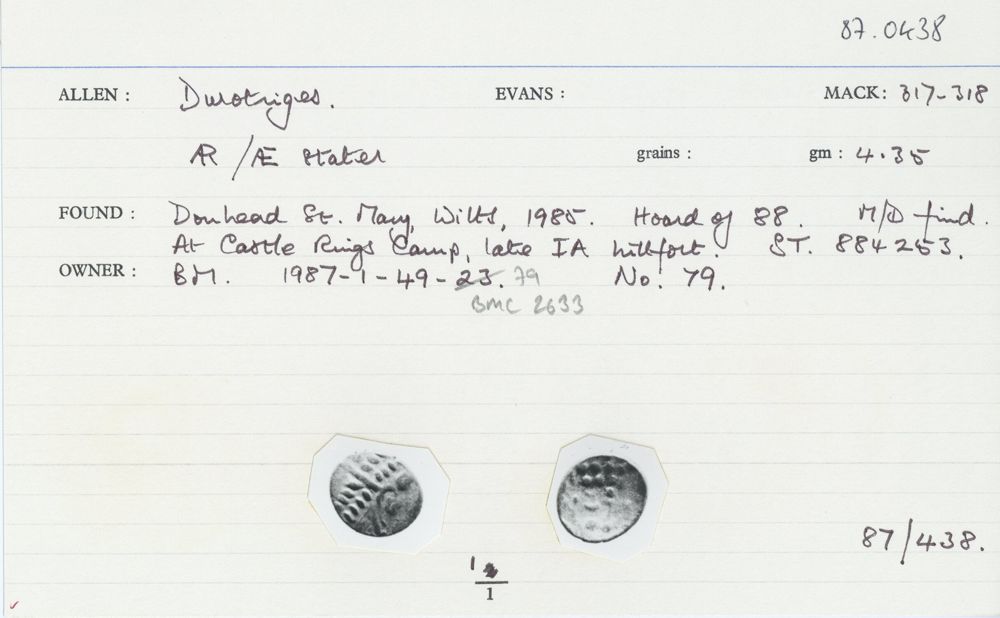 87.0438
ALLEN : Durotriges. EVANS : MACK: 317-318
AR /Æ stater grains : gm : 4.35
FOUND : Donhead St. Mary, Wilts, 1985. Hoard of 88. M/D find.
At Castle Rings Camp, late IA hillfort. ST. 884253.
OWNER : BM. 1987-1-49-23. 79 No. 79.
BMC 2633
87/438.
1
1